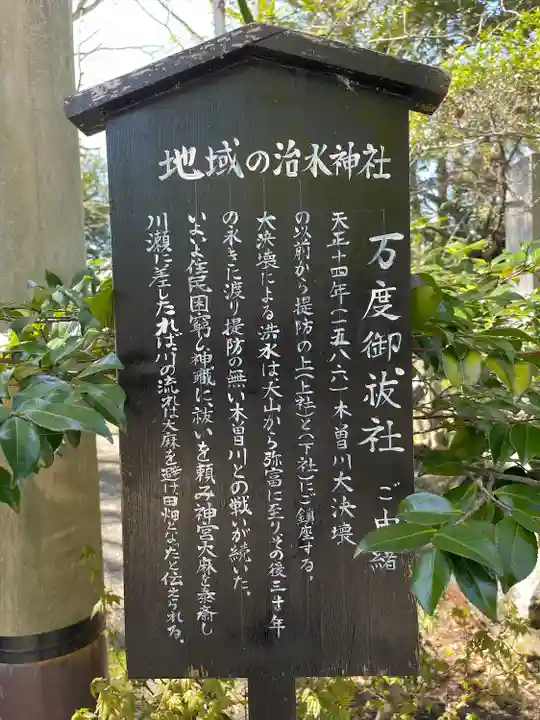 地域の治水神社
万度御祓社 ご由緒
天正十四年(一五八六)木曽川大決壊
の以前から提防の上(上社)と(下社)にご鎮座する、
大決壊による洪水は犬山から弥富に至りその後三十年
の永きに渡り提防の無い木曽川との戦いが続いた。
いよいよ住民困窮し神職に祓いを頼み神宮大麻を奉斎し
川瀬に差したれば川の流れは大麻を避け田畑となったと伝えられる。